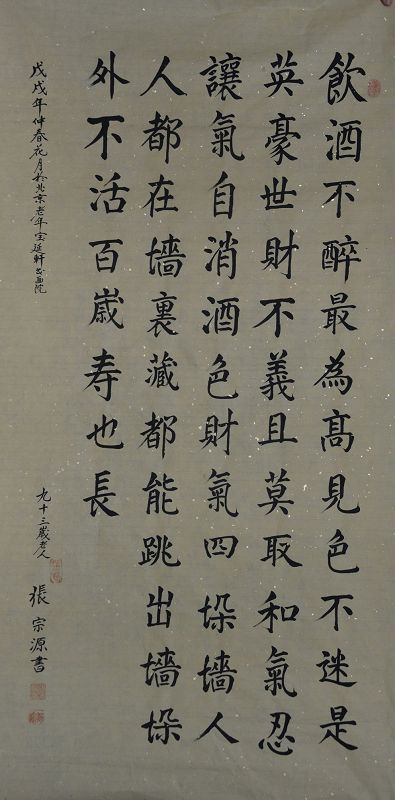 飲酒不醉最為高見色不迷是
英豪世財不義且莫取和氣忍
讓氣自消酒色財氣四垛墻人
人都在墻裏藏都能跳出墻垛
外不活百嵗寿也長
戊戌年仲春花月於北京老年宝延軒书画院
九十三嵗老人
張宗源書